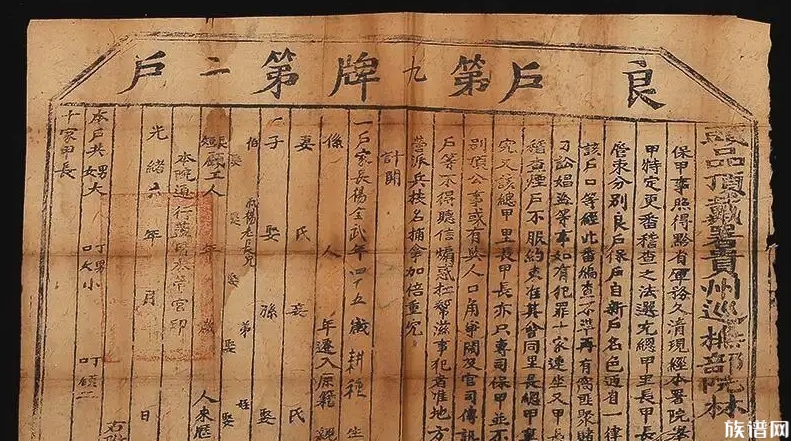 良戶第九牌第二戶
品頂戴署貴州巡撫部院林
保甲事照得黔省軍務久清現經本署院
甲特定更番稽查之法選充總甲里長甲長
管束分別良戶保戶自新戶名色通省一律
該戶口等經此番編查不準再有窩匪聚賭
刁訟娼盜等事如有犯罪十家連坐又甲長
稽查煙戶不服約束在其會同里長總甲
究又該總甲里長甲長亦只專司保甲並
別項公事或有與人口角爭鬧及官司傳訊
戶等不得聽信煽惑扛幫滋事犯者惟地方
營派兵按名捕拿加倍重究
計開
一戶家長楊全武年四十五歲耕種生
係 人 年遷入原範親
妻 氏 妾 氏
子 娶 孫 娶
伯 娶 弟 娶 姪 娶
雇工人 年 歲 人來歷
本院通行 官印
光緒六年 月 日
本戶共 男大 丁 男小 丁
女大 口 口
十家甲長
族谱网